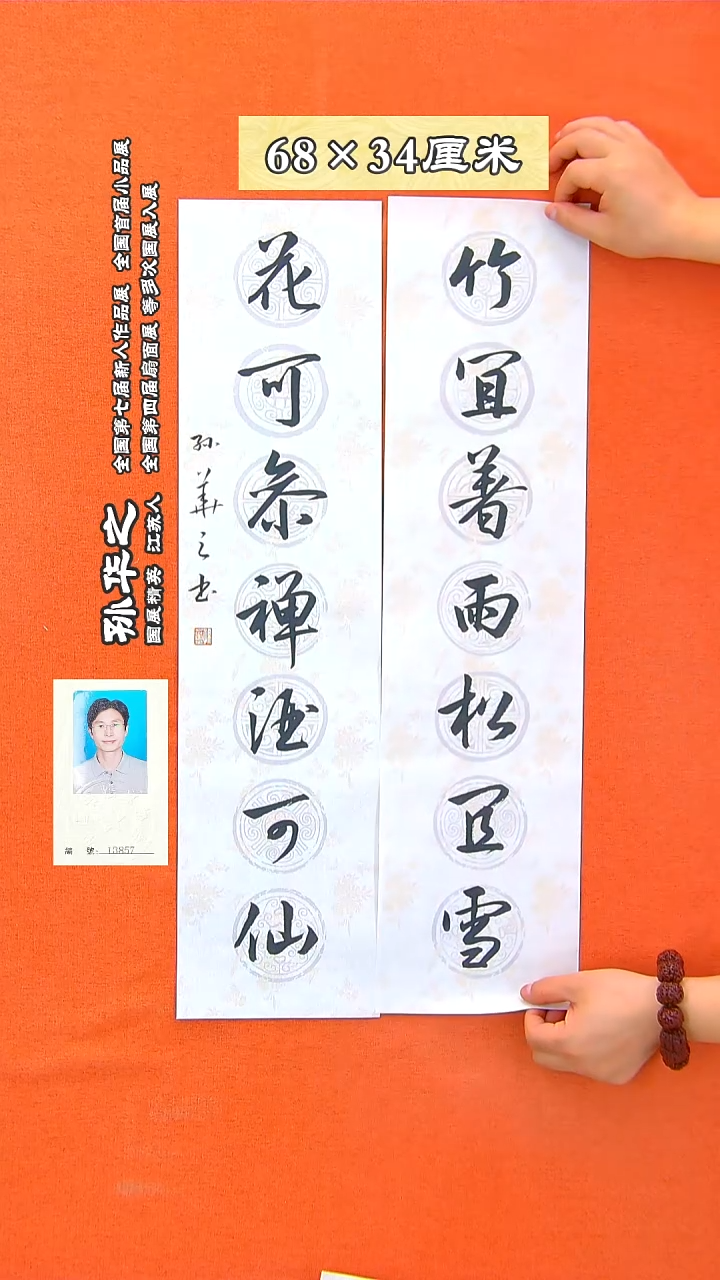 68×34厘米
竹宜著雨松宜雪
花可参禅酒可仙
孙华之书
孙华之
国展精英 江苏人
全国第七届新人作品展 全国首届小品展
全国第四届扇面展 等多次国展入展
编 號: 13857